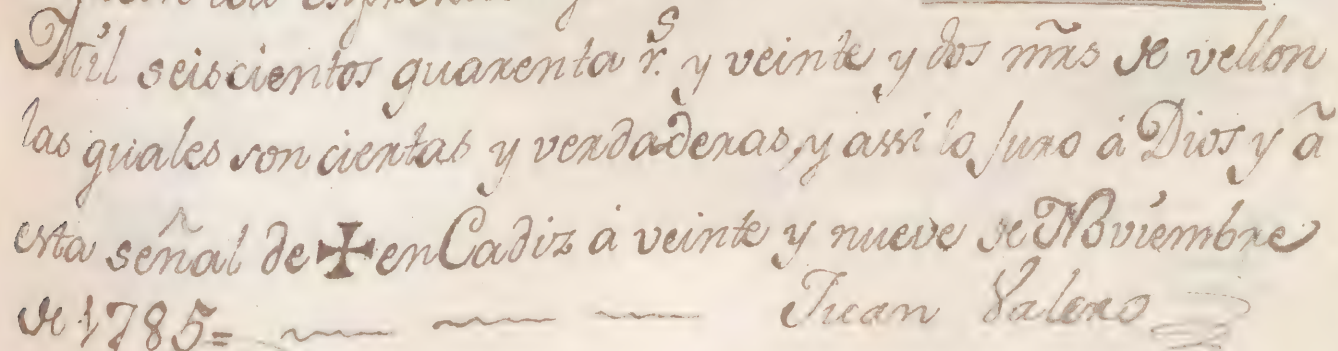 Mil seiscientos quarenta r.s y veinte y dos mrs de vellon
las quales son ciertas y verdaderas, y assi lo Juro á Dios y á
esta señal de ✠ en Cadiz á veinte y nueve de Noviembre
de 1785=
Juan Valero